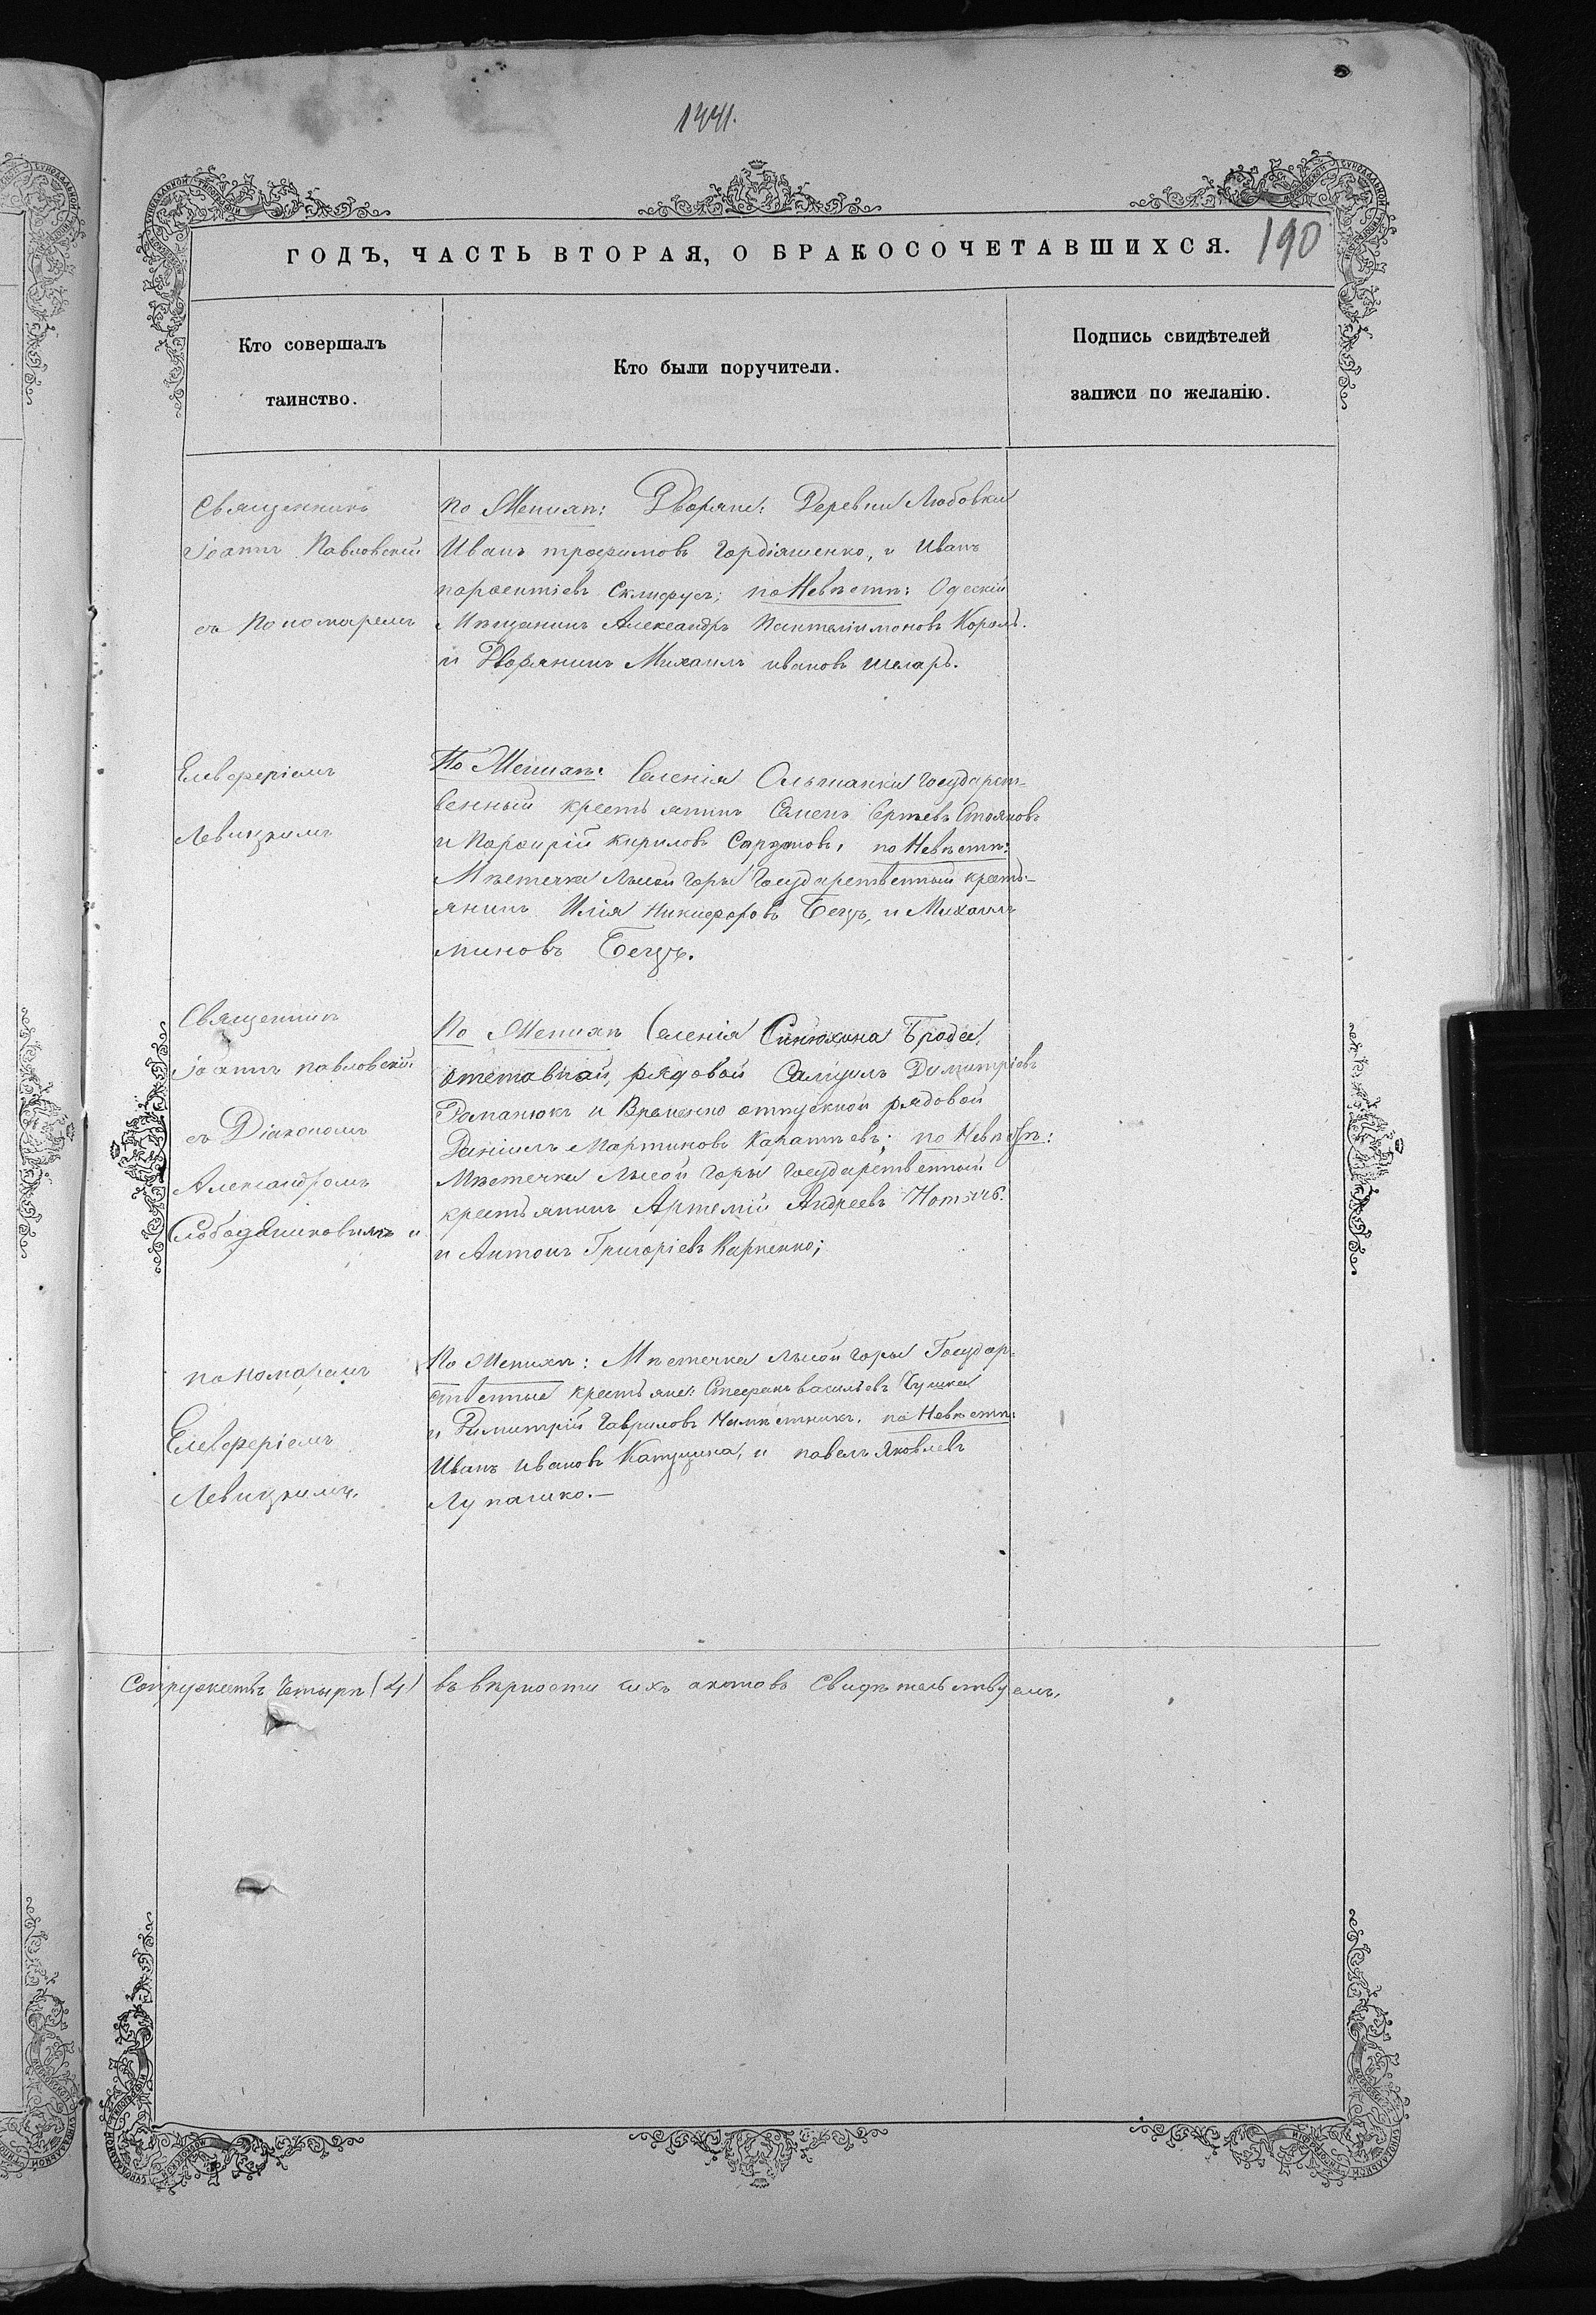 1441.
190
ГОДЪ, ЧАСТЬ ВТОРАЯ, О БРАКОСОЧЕТАВШИХСЯ.
Кто совершалъ
таинство.
Кто были поручители.
Подпись свидѣтелей
записи по желанію.
Священникъ
Іоаннъ Павловскій
съ Пономаремъ
Елевферіемъ
Левицкимъ
по Женихѣ: Дворяне: Деревни Любовки
Иванъ трофимовъ Гордіяшенко, и Иванъ
парфентіевъ Склифусъ; по Невѣстѣ: Одескій
Мѣщанинъ Александръ Пантелімоновъ Король.
и Дворянинъ Михаилъ ивановъ шларъ.
По Женихѣ: Селенія Ольшанки Государст-
венный крестьянинъ Семенъ Стояновъ
и Порфирій кириловъ по Невѣстѣ:
Мѣстечка Лысой горы Государственный кресть-
янинъ Илія Никифоровъ Бегуъ, и Михаилъ
миновъ Бегуъ.
Священникъ
іоаннъ павловскій
съ Діакономъ
Александромъ
Слободяниковымъ и
пономаремъ
Елевферіемъ
Левицкимъ.
По Женихѣ Селенія Синюхина Брода,
отставной, рядовой Самуилъ Димитріевъ
Романюкъ и Временно отпускной рядовой
Даніилъ Мартиновъ по Невѣстѣ:
Мѣстечка Лысой горы Государственный
крестьянинъ Артемій Андреевъ
и Антонъ Григоріевъ Карпенко;
По Женихѣ: Мѣстечка Лысой горы Государ-
ственные крестьяне: Стефанъ васильевъ
и Димитрій Гавриловъ Намѣстникъ. по Невѣстѣ:
Иванъ ивановъ Кацущина, и павелъ Яковлевъ
Лупашко.—
Сопружествъ Четыри (4) въ вѣрности сихъ актовъ Свидѣтельствуемъ.